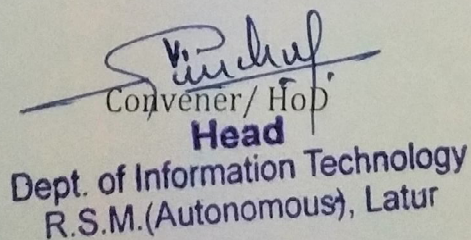 Convener/ HoD
Head
Dept. of Information Technology
R.S.M.(Autonomous), Latur